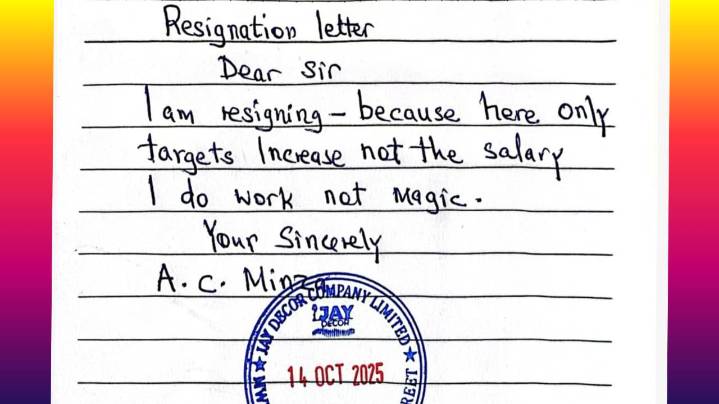 Resignation letter
Dear Sir
I am resigning – because here only
targets Increase not the salary
I do work not magic.
Your Sincerely
A. C. Minz
JAY DECOR COMPANY LIMITED
JAY
DECOR
14 OCT 2025